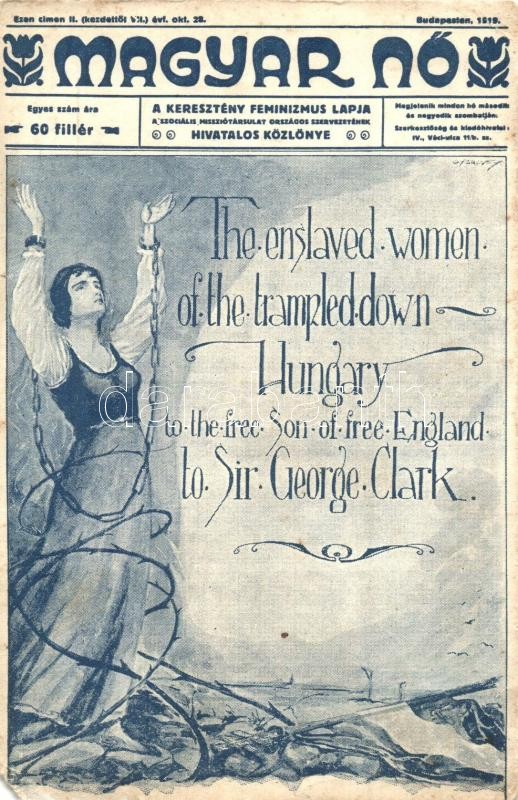 Ezen cimen II. (kezdettől VII.) évf. okt. 28.
Budapesten, 1919.
MAGYAR NŐ
Egyes szám ára
60 fillér
A KERESZTÉNY FEMINIZMUS LAPJA
A SZOCIÁLIS MISSZIÓTÁRSULAT ORSZÁGOS SZERVEZETÉNEK
HIVATALOS KÖZLÖNYE
Megjelenik minden hó második
és negyedik szombatján.
Szerkesztőség és kiadóhivatal:
IV., Váci-utca 11/b. sz.
The·enslaved·women·
of·the·trampled·down
Hungary
to·the·free·Son·of·free·England·
to·Sir·George·Clark.